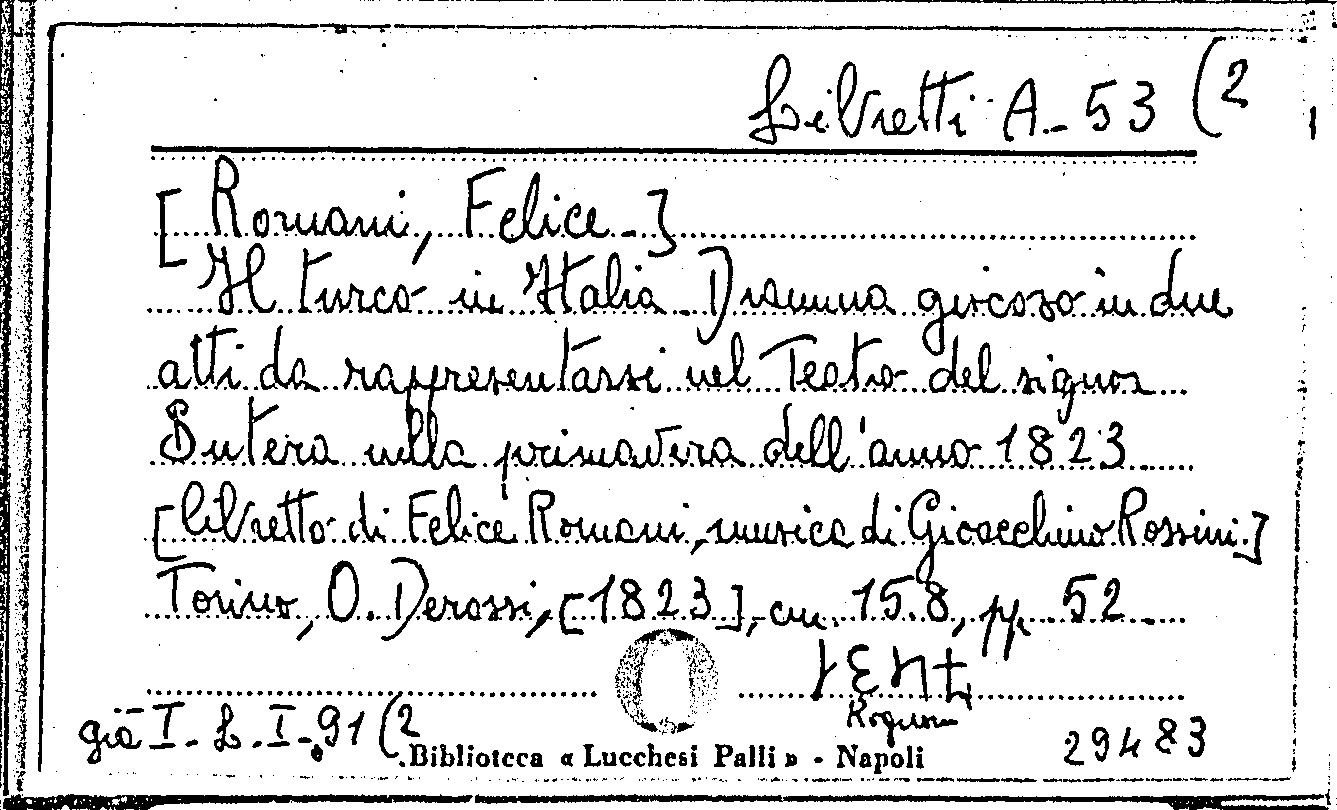 Libretti A-53 (2
[Romani, Felice-]
Il turco in Italia. Dramma giocoso in due
atti da rappresentarsi nel Teatro del signor
Sutera nella primavera dell'anno 1823
[libretto di Felice Romani, musica di Gioacchino Rossini.]
Torino, O. Derossi, [1823], cm. 15.8, pp. 52
già I-L.I-91 (2
29483
Biblioteca « Lucchesi Palli » - Napoli